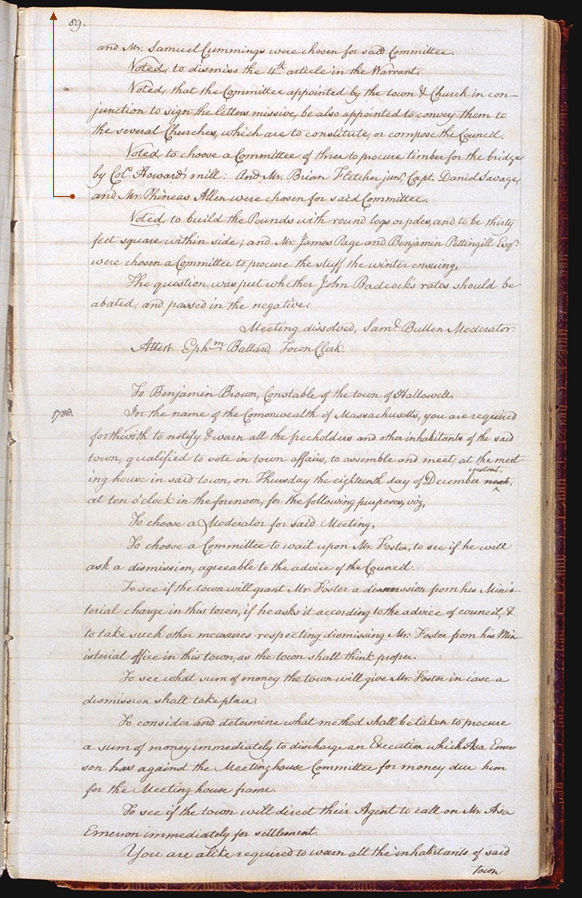 89.
and Mr. Samuel Cummings were chosen for said Committee.
Voted, to dismiss the 4th article in the Warrant.
Voted, that the Committee appointed by the town & Church in con-
junction to sign the letters missive, be also appointed to convey them to
the several Churches, which are to constitute, or compose the Council.
Voted, to choose a Committee of three to procure timber for the bridge
by Col. Howards mill: And Mr. Brian Fletcher junr. Capt. Daniel Savage,
and Mr. Phineas Allen were chosen for said Committee.
Voted, to build the Pounds with round logs or poles, and to be thirty
feet square within side; and Mr. James Page and Benjamin Pettingill Esqr
were chosen a Committee to procure the stuff the winter ensuing.
The question was put whether John Badcock's rates should be
abated, and passed in the negative.
Meeting dissolved, Saml. Bullen Moderator.
Attest Ephm Ballard, Town Clerk.
To Benjamin Brown, Constable of the town of Hallowell.
1788 In the name of the Comonwealth of Massachusetts, you are required
forthwith to notify & warn all the freeholders and other inhabitants of the said
town, qualified to vote in town affairs, to assemble and meet, at the meet
ing house in said town, on Thursday the eighteenth day of December instant,
at ten o'clock in the forenoon, for the following purposes, viz,
To choose a Moderator for said Meeting.
To choose a Committee to wait upon Mr. Foster, to see if he will
ask a dismission, agreeable to the advice of the Council.
To see if the town will grant Mr Foster a dismission from his Minis
terial charge in this town, if he asks it according to the advice of council, &
to take such other measures respecting dismissing Mr. Foster from his Min
isterial office in this town, as the town shall think proper.
To see what sum of money the town will give Mr. Foster in case a
dismission shall take place.
To consider and determine what method shall be taken to procure
a sum of money immediately to discharge an Execution which Asa Emer
son has against the Meetinghouse Committee for money due him
for the Meeting house frame.
To see if the town will direct their Agent to call on Mr. Asa
Emerson immediately for settlement.
You are alike required to warn all the inhabitants of said
town